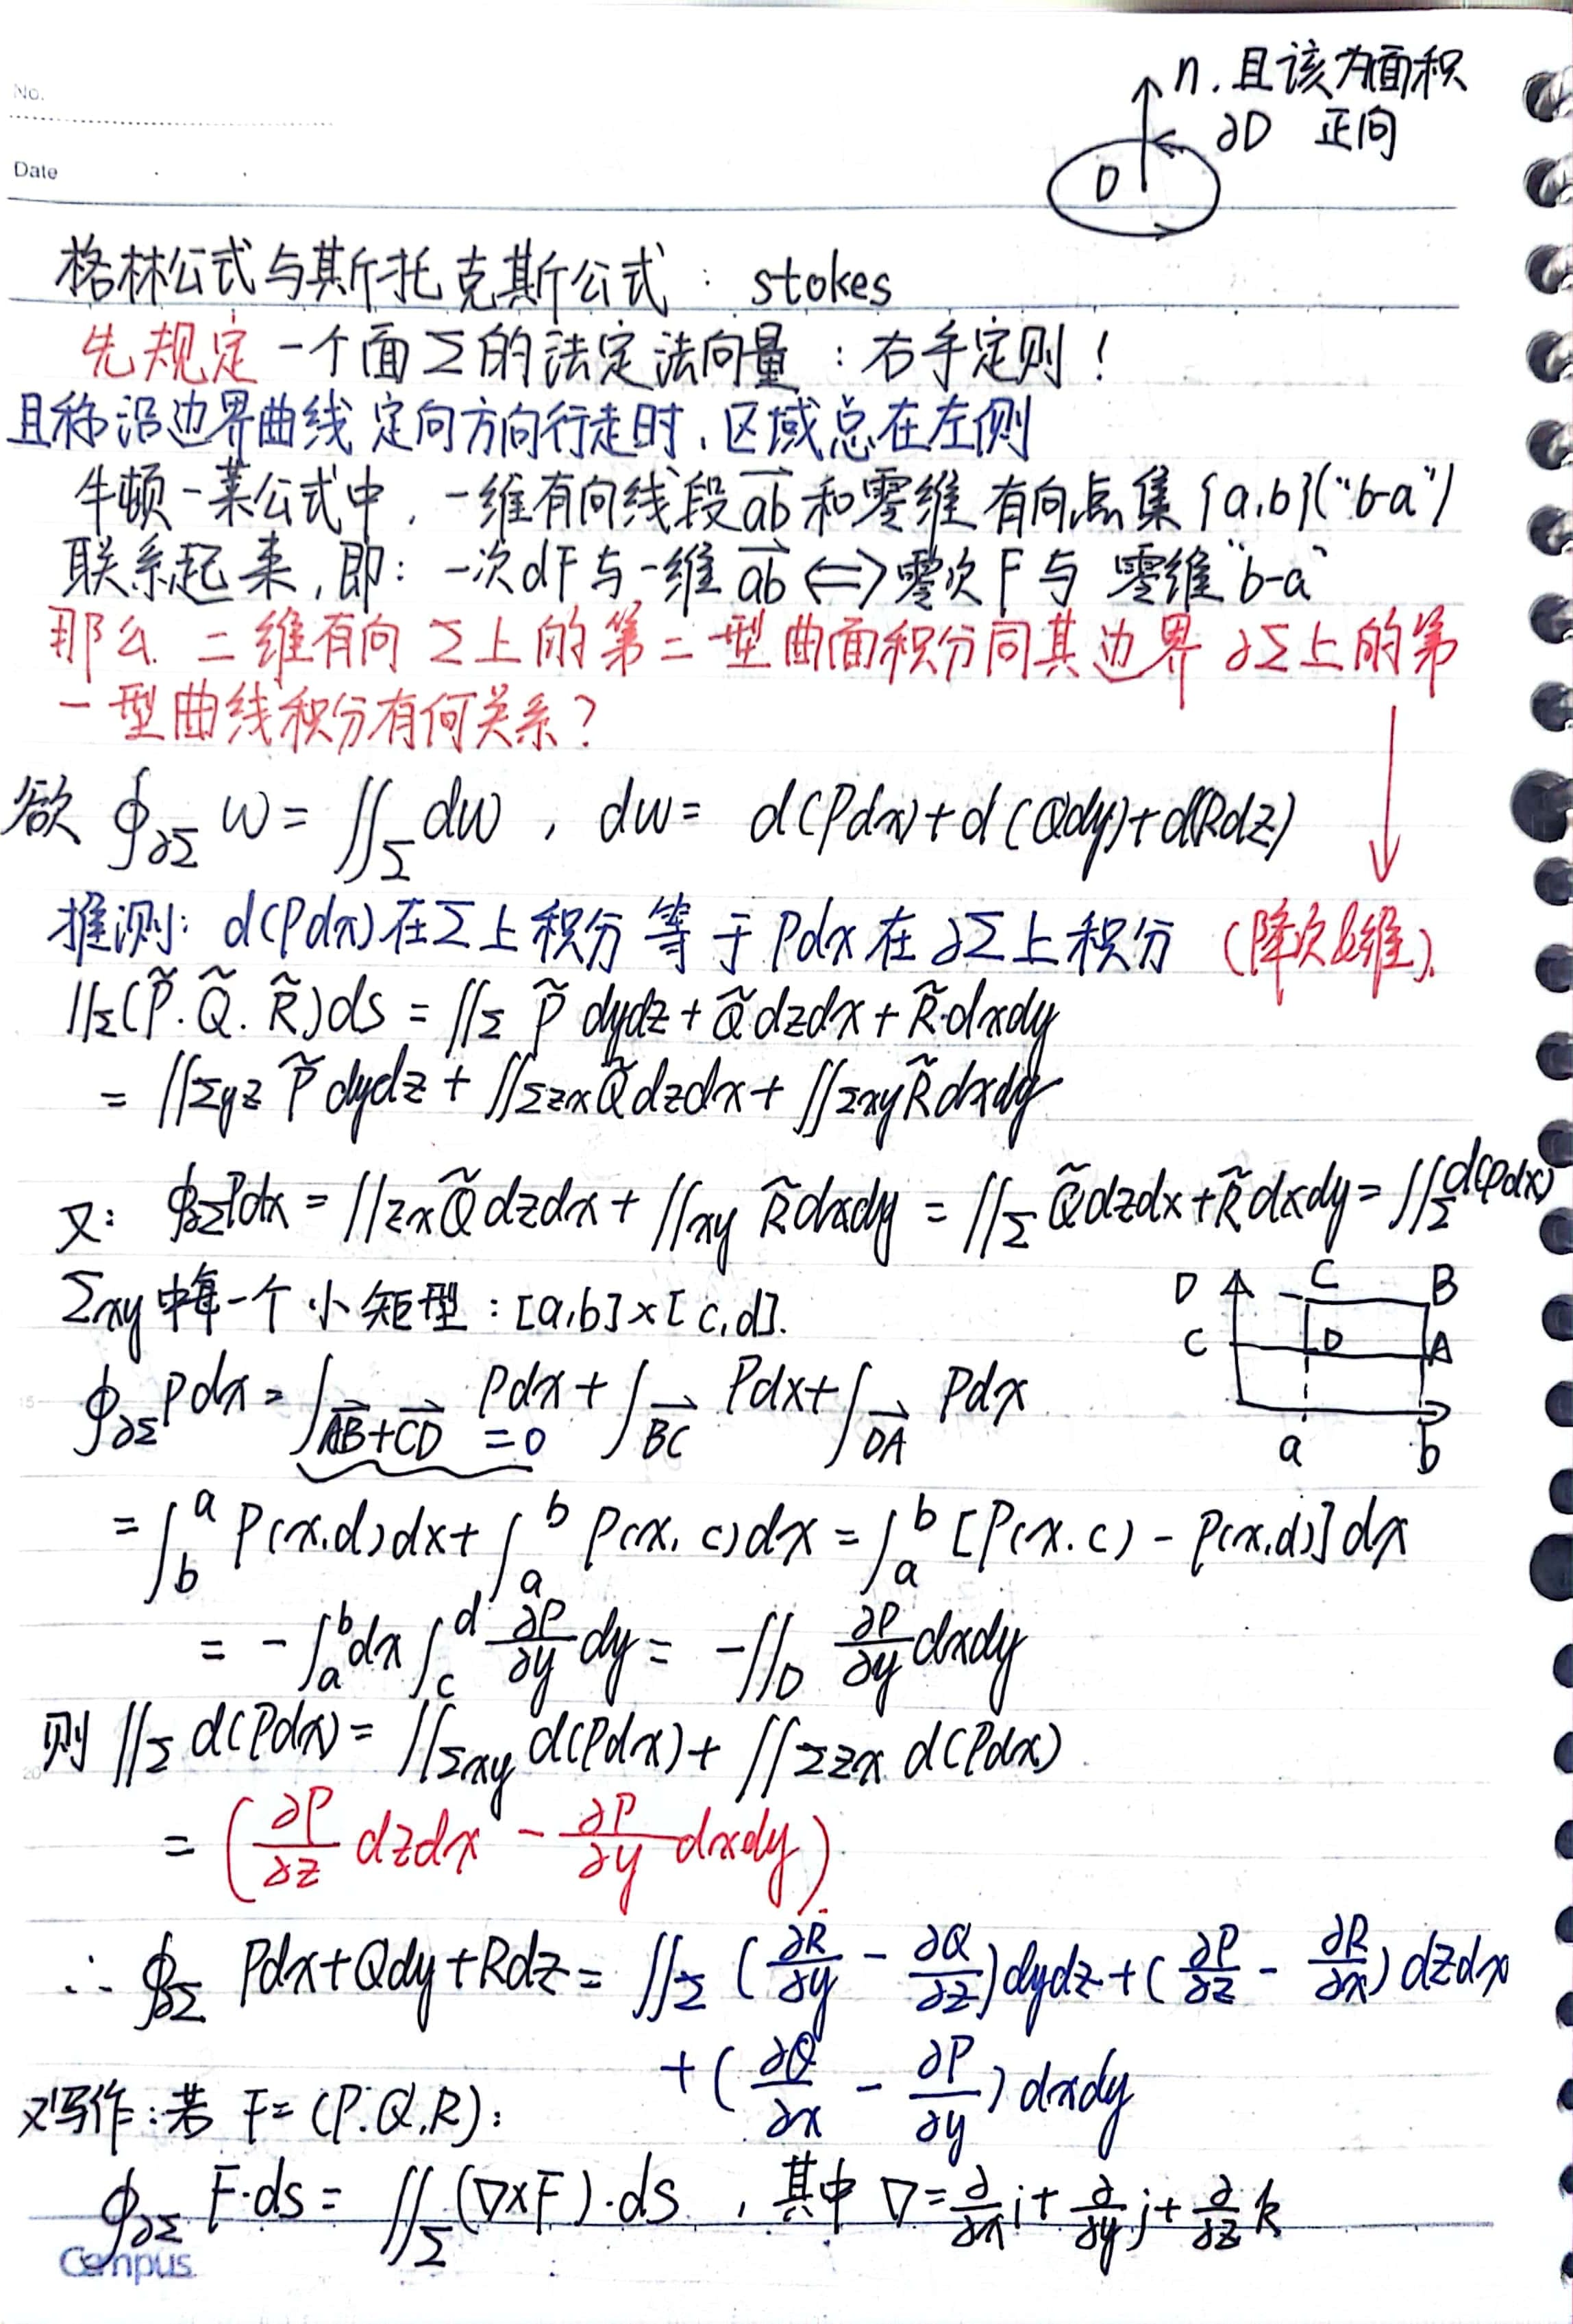 No.
Date
n.且该为面积
∂D 正向
D
格林公式与斯托克斯公式: stokes
先规定一个面Σ的法定法向量:右手定则!
且称沿边界曲线定向方向行走时,区域总在左侧
牛顿-莱公式中,一维有向线段ab和零维有向点集{a,b}("b-a")
联系起来,即:一次dF与一维ab⇔零次F与零维"b-a"
那么 二维有向Σ上的第二型曲面积分同其边界∂Σ上的第
一型曲线积分有何关系?
欲 ∮∂Σ w = ∬Σ dw , dw = d(Pdx)+d(Qdy)+d(Rdz)
推测: d(Pdx)在Σ上积分等于Pdx在∂Σ上积分 (降次&维).
∬Σ(P̃.Q̃.R̃)ds = ∬Σ P̃dydz+Q̃dzdx+R̃dxdy
= ∬Σyz P̃dydz + ∬Σzx Q̃dzdx + ∬Σxy R̃dxdy
又: ∮∂Σ Pdx = ∬zx Q̃dzdx + ∬xy R̃dxdy = ∬Σ Q̃dzdx+R̃dxdy = ∬Σ d(Pdx)
Σxy中每一个小矩型:[a,b]×[c,d].
D C B
C D A
a b
∮∂Σ Pdx = ∫AB+CD Pdx + ∫BC Pdx + ∫DA Pdx
=0
= ∫_b^a P(x,d)dx + ∫_a^b P(x,c)dx = ∫_a^b [P(x.c) - P(x,d)]dx
= -∫_a^b dx ∫_c^d ∂P/∂y dy = -∬D ∂P/∂y dxdy
则 ∬Σ d(Pdx) = ∬Σxy d(Pdx) + ∬Σzx d(Pdx)
= (∂P/∂z dzdx - ∂P/∂y dxdy).
∴ ∮∂Σ Pdx+Qdy+Rdz = ∬Σ (∂R/∂y - ∂Q/∂z)dydz + (∂P/∂z - ∂R/∂x)dzdx
+ (∂Q/∂x - ∂P/∂y)dxdy
又写作:若 F=(P.Q.R):
∮∂Σ F·ds = ∬Σ (∇×F)·ds , 其中 ∇=∂/∂x i + ∂/∂y j + ∂/∂z k
Campus